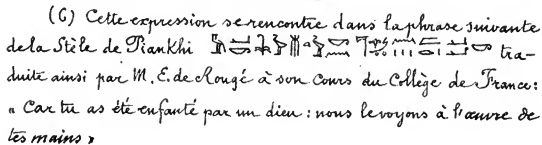 (6) Cette expression se rencontre dans la phrase suivante
de la Stèle de Piankhi tra-
duite ainsi par M. E. de Rougé à son Cours du Collège de France:
« Car tu as été enfanté par un dieu : nous le voyons à l'œuvre de
tes mains »